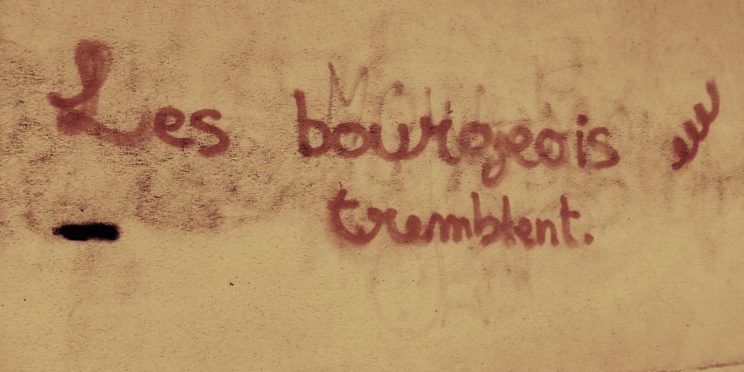 Les bourgeois
tremblent.